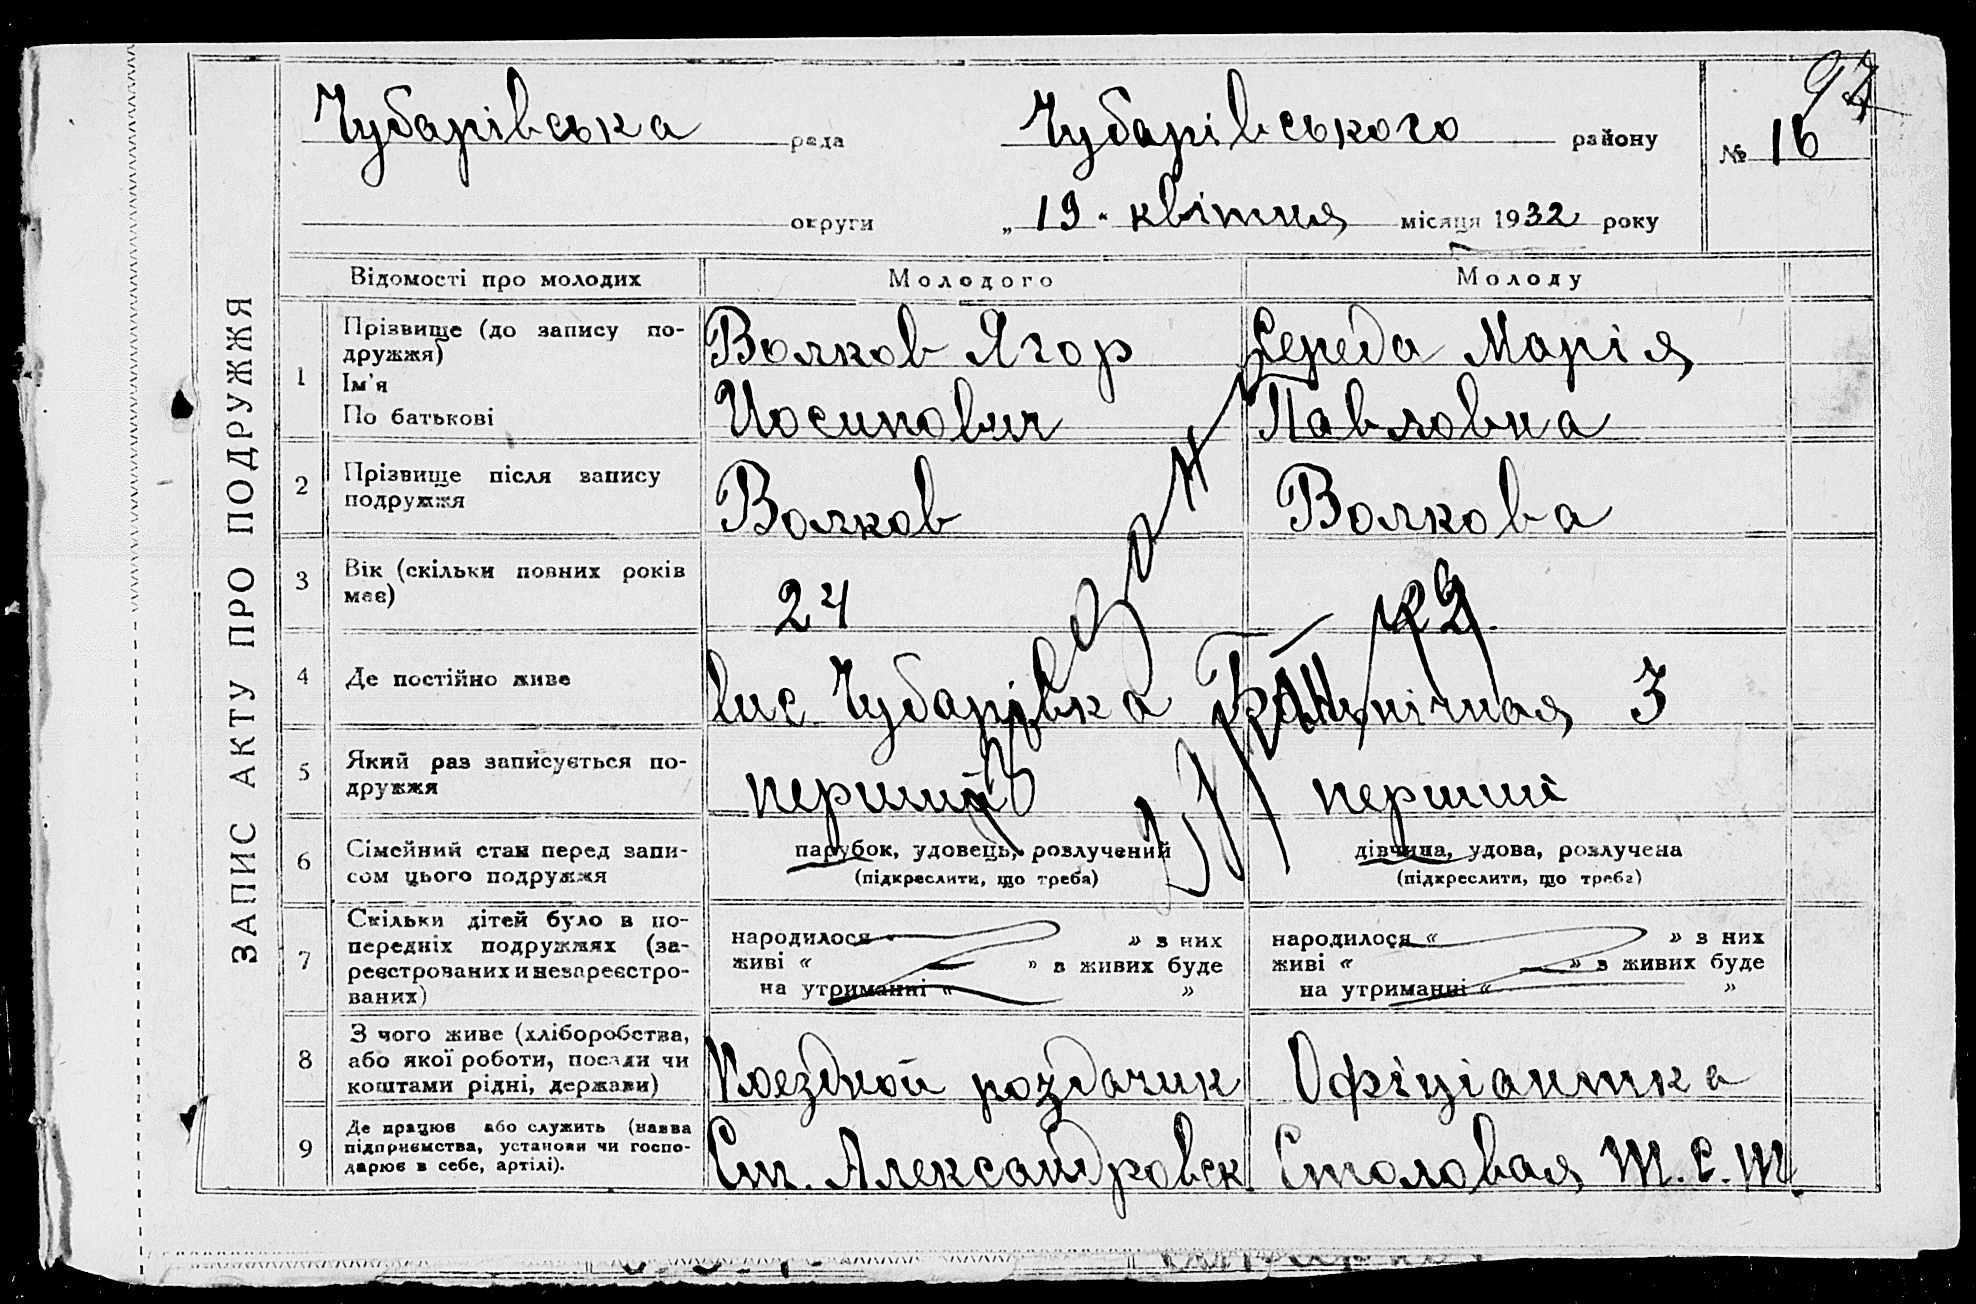 ЗАПИС АКТУ ПРО ПОДРУЖЖЯ
97
Чубарівська рада Чубарівського району № 16
округи „19“ квітня місяця 1932 року
Відомості про молодих Молодого Молоду
1 Прізвище (до запису по-
дружжя)
Ім'я
По батькові
Волков Ягор
Иосипович
Середа Марія
Павловна
2 Прізвище після запису
подружжя
Волков
Волкова
3 Вік (скільки повних років
має)
24
4 Де постійно живе
вис. Чубарівка
3
5 Який раз записується по-
дружжя
перший
перший
6 Сімейний стан перед запи-
сом цього подружжя
парубок, удовець, розлучений
(підкреслити, що треба)
дівчина, удова, розлучена
(підкреслити, що треба)
7 Скільки дітей було в по-
передніх подружжях (за-
реєстрованих и незареєстро-
ваних)
народилося « » з них
живі « — » в живих буде
на утриманні « »
народилося « » з них
живі « — » в живих буде
на утриманні « »
8 З чого живе (хліборобства,
або якої роботи, посади чи
коштами рідні, держави)
роздачик
Офіціантка
9 Де працює або служить (назва
підприємства, установи чи госпо-
дарює в себе, артілі).
Ст. Александровск
Столовая Т.С.Т.